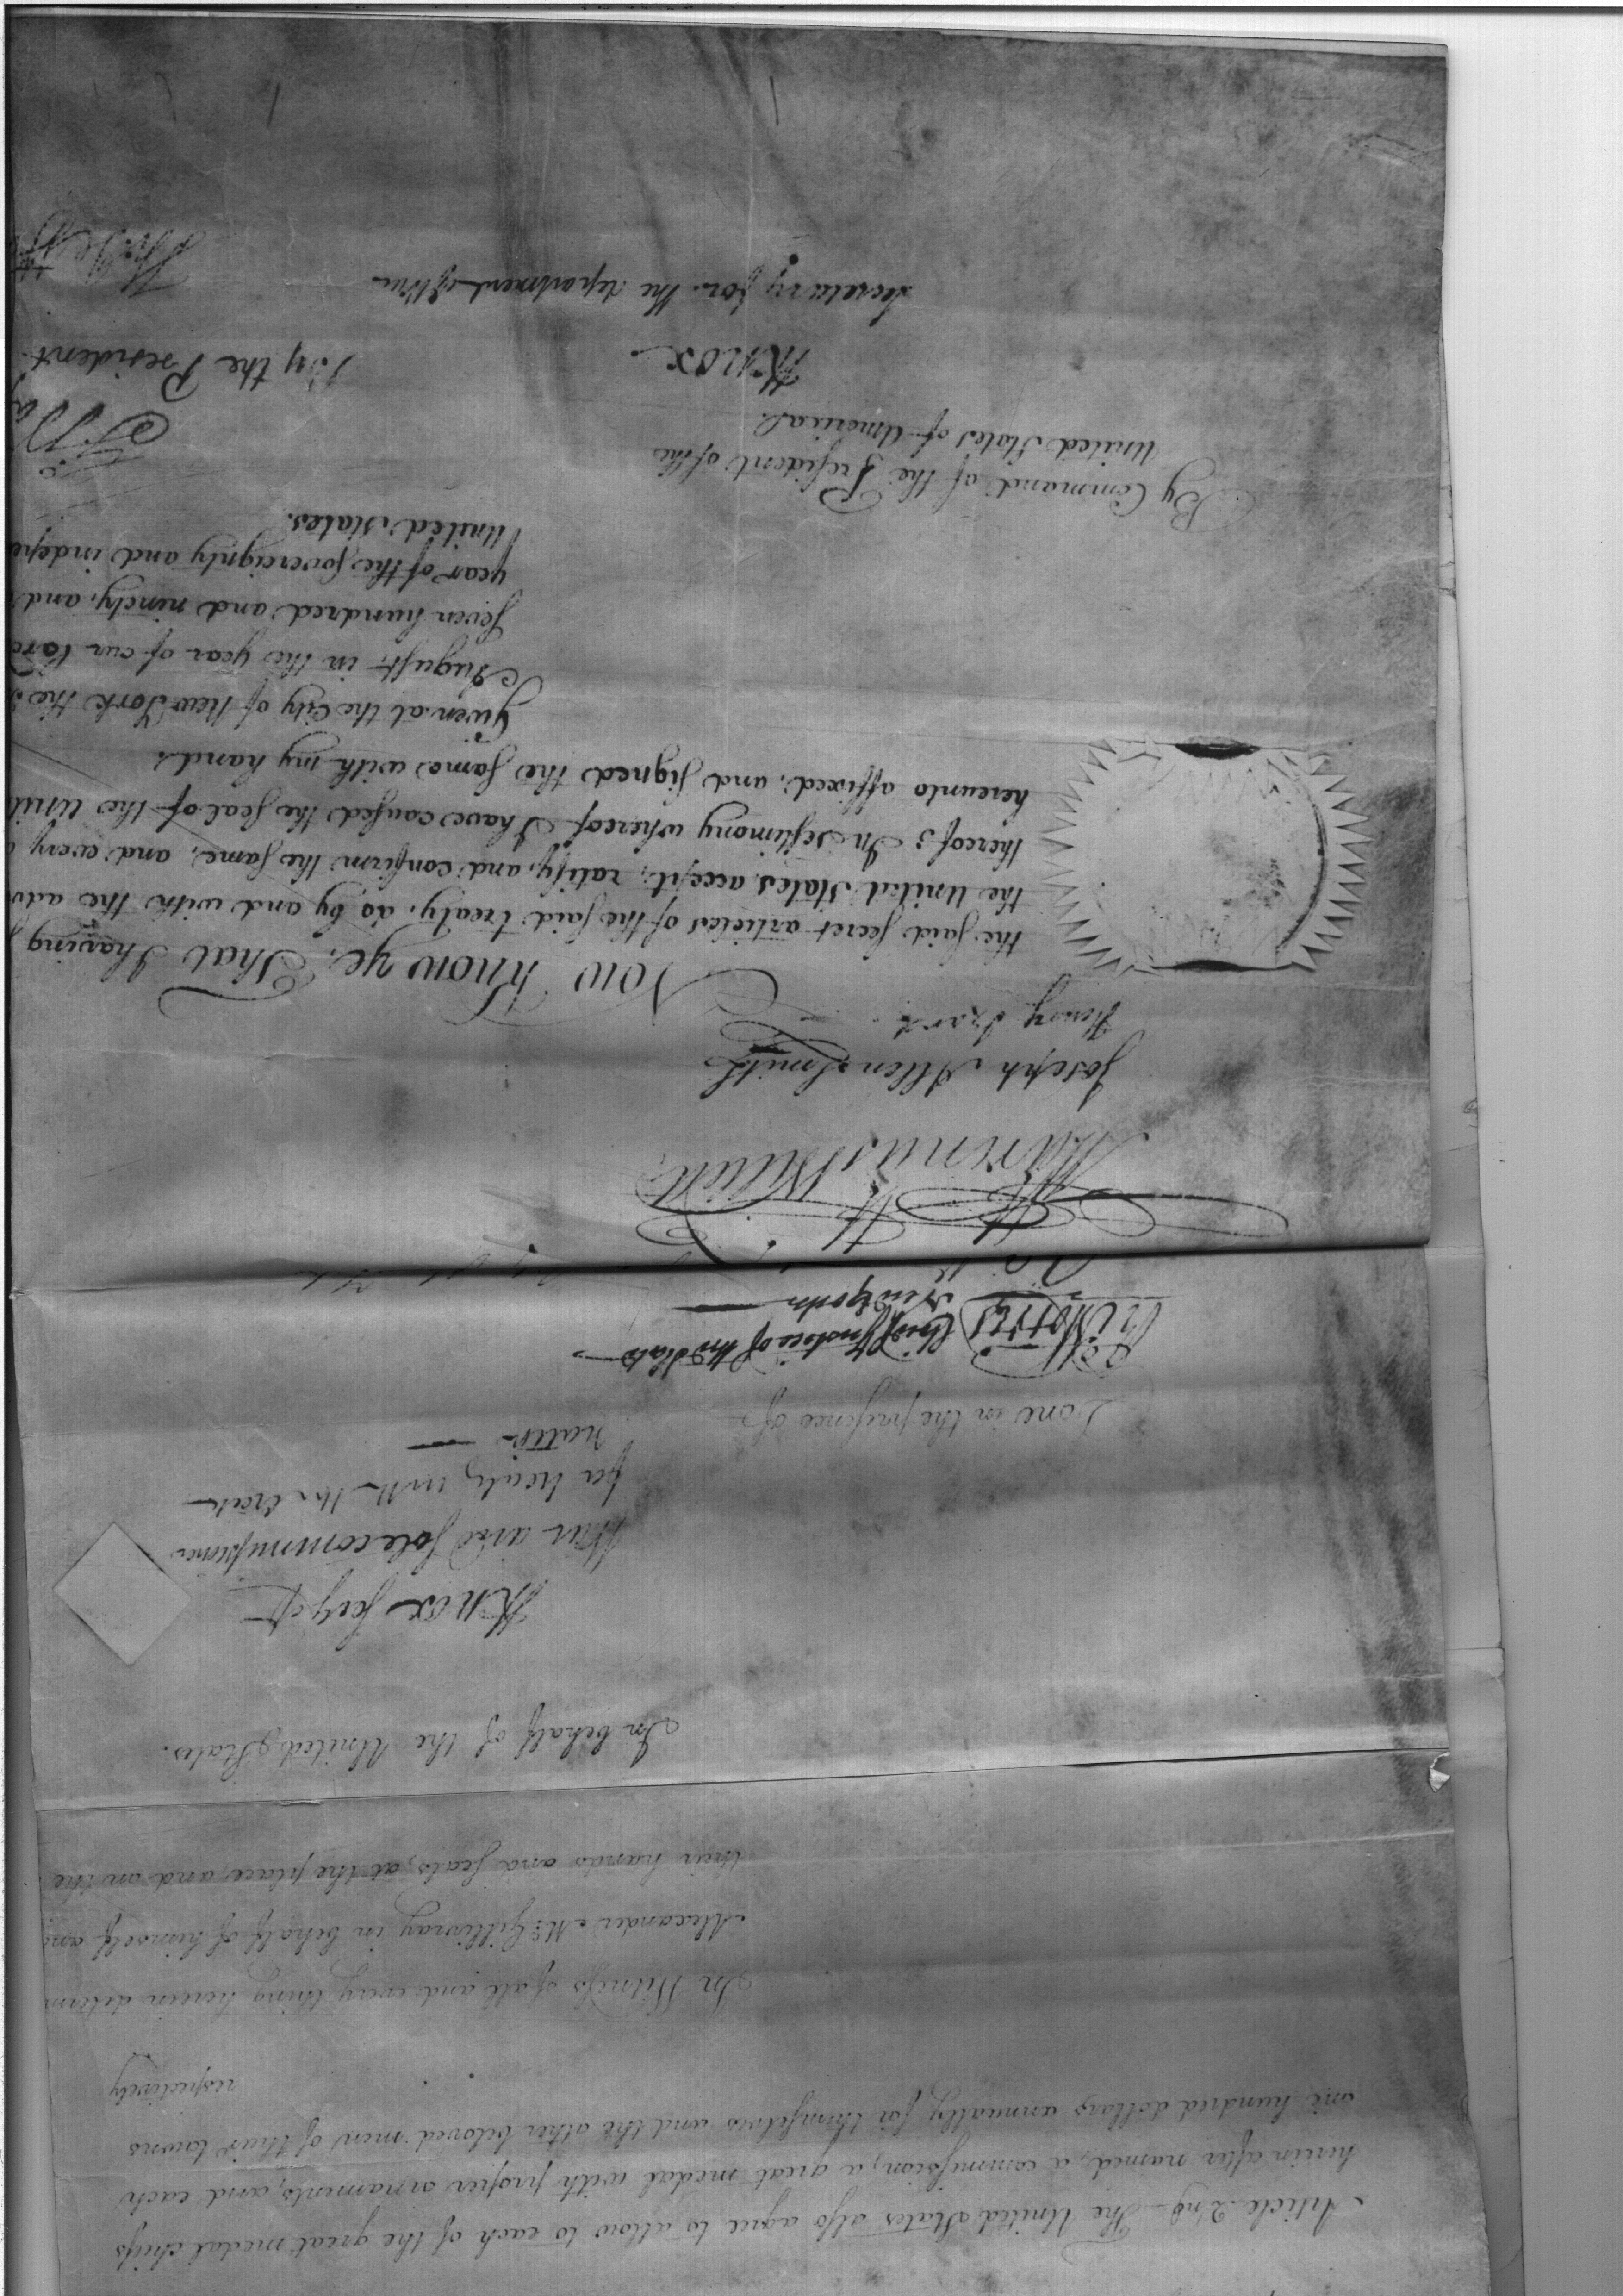 Article 2nd. The United States also agree to allow to each of the great medal chiefs
herein after named, a commission, a great medal with proper ornaments, and each
one hundred dollars annually for themselves and the other beloved men of their towns
respectively
In Witness of all and every thing herein determ
Alexander McGillivray in behalf of himself and
their hands and seals, at the place and on the
In behalf of the United States.
HKnox Secy of
War and sole commissioner
for treaty with the Creek
nation
Done in the presence of
Ri: Morris Chief Justice of the State
New York
Marinus Willett
Joseph Allen Smith
Henry Izard
Now Know ye, That I having
the said secret articles of the said treaty, do, by and with the adv
the United States accept, ratify, and confirm the same, and every
thereof: In testimony whereof I have caused the seal of the Unit
hereunto affixed, and signed the same with my hand.
Given at the City of New York the
August in the year of our Lord
seven hundred and ninety, and
year of the sovereignty and indepe
United States.
By Command of the President of the
United States of America
HKnox
Secretary for the department of War
By the President